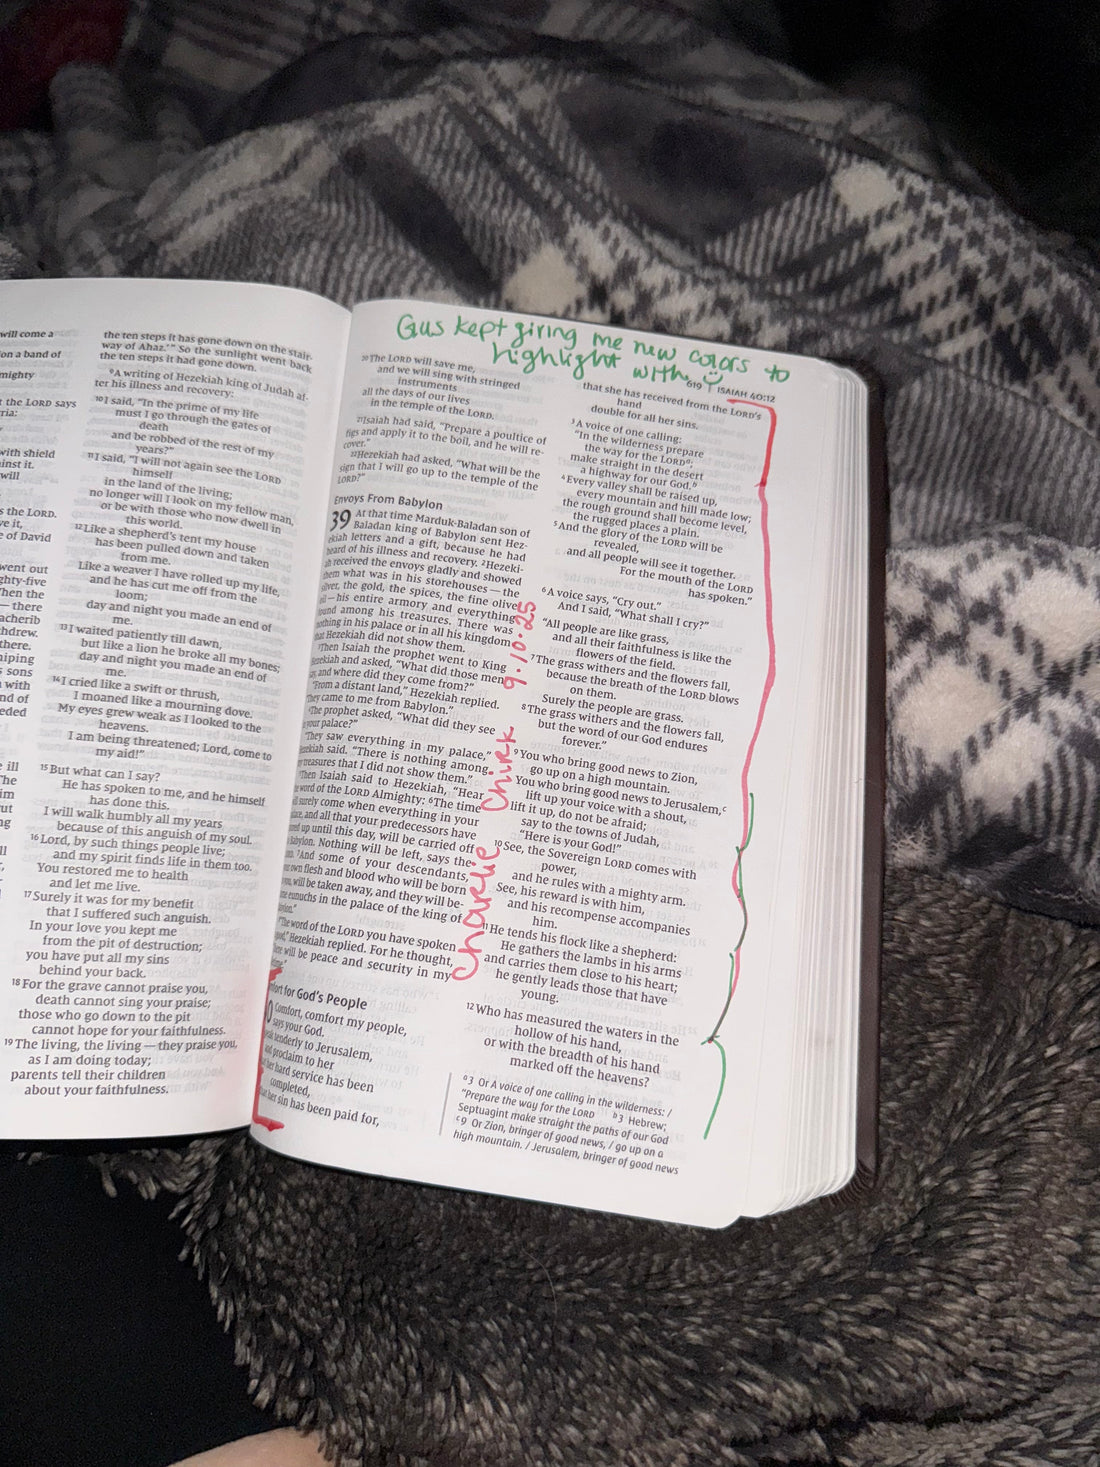 will come a
on a band of
mighty
t the LORD says
ria:
with shield
inst it.
will
s the LORD.
ve it,
e of David
went out
ghty-five
hen the
— there
acherib
hdrew.
there.
iping
s sons
with
nd of
eded
the ten steps it has gone down on the stair-
way of Ahaz.'" So the sunlight went back
the ten steps it had gone down.
9A writing of Hezekiah king of Judah af-
ter his illness and recovery:
10I said, "In the prime of my life
must I go through the gates of
death
and be robbed of the rest of my
years?"
11I said, "I will not again see the LORD
himself
in the land of the living;
no longer will I look on my fellow man,
or be with those who now dwell in
this world.
12Like a shepherd's tent my house
has been pulled down and taken
from me.
Like a weaver I have rolled up my life,
and he has cut me off from the
loom;
day and night you made an end of
me.
13I waited patiently till dawn,
but like a lion he broke all my bones;
day and night you made an end of
me.
14I cried like a swift or thrush,
I moaned like a mourning dove.
My eyes grew weak as I looked to the
heavens.
I am being threatened; Lord, come to
my aid!"
15But what can I say?
He has spoken to me, and he himself
has done this.
I will walk humbly all my years
because of this anguish of my soul.
16Lord, by such things people live;
and my spirit finds life in them too.
You restored me to health
and let me live.
17Surely it was for my benefit
that I suffered such anguish.
In your love you kept me
from the pit of destruction;
you have put all my sins
behind your back.
18For the grave cannot praise you,
death cannot sing your praise;
those who go down to the pit
cannot hope for your faithfulness.
19The living, the living — they praise you,
as I am doing today;
parents tell their children
about your faithfulness.
Gus kept giving me new colors to
highlight with
619 | ISAIAH 40:12
20The LORD will save me,
and we will sing with stringed
instruments
all the days of our lives
in the temple of the LORD.
21Isaiah had said, "Prepare a poultice of
figs and apply it to the boil, and he will re-
cover."
22Hezekiah had asked, "What will be the
sign that I will go up to the temple of the
LORD?"
Envoys From Babylon
39 At that time Marduk-Baladan son of
Baladan king of Babylon sent Hez-
ekiah letters and a gift, because he had
heard of his illness and recovery. 2Hezeki-
ah received the envoys gladly and showed
them what was in his storehouses — the
silver, the gold, the spices, the fine olive
oil — his entire armory and everything
found among his treasures. There was
nothing in his palace or in all his kingdom
that Hezekiah did not show them.
Then Isaiah the prophet went to King
Hezekiah and asked, "What did those men
say, and where did they come from?"
"From a distant land," Hezekiah replied.
"They came to me from Babylon."
The prophet asked, "What did they see
your palace?"
"They saw everything in my palace,"
Hezekiah said. "There is nothing among
my treasures that I did not show them."
Then Isaiah said to Hezekiah, "Hear
the word of the LORD Almighty: 6The time
will surely come when everything in your
palace, and all that your predecessors have
stored up until this day, will be carried off
to Babylon. Nothing will be left, says the
LORD. 7And some of your descendants,
your own flesh and blood who will be born
to you, will be taken away, and they will be-
come eunuchs in the palace of the king of
Babylon."
"The word of the LORD you have spoken
is good," Hezekiah replied. For he thought,
"There will be peace and security in my
Comfort for God's People
Comfort, comfort my people,
says your God.
Speak tenderly to Jerusalem,
and proclaim to her
that her hard service has been
completed,
that her sin has been paid for,
Charlie Chirk 9.10.25
that she has received from the LORD's
hand
double for all her sins.
3A voice of one calling:
"In the wilderness prepare
the way for the LORDa;
make straight in the desert
a highway for our God.b
4Every valley shall be raised up,
every mountain and hill made low;
the rough ground shall become level,
the rugged places a plain.
5And the glory of the LORD will be
revealed,
and all people will see it together.
For the mouth of the LORD
has spoken."
6A voice says, "Cry out."
And I said, "What shall I cry?"
"All people are like grass,
and all their faithfulness is like the
flowers of the field.
7The grass withers and the flowers fall,
because the breath of the LORD blows
on them.
Surely the people are grass.
8The grass withers and the flowers fall,
but the word of our God endures
forever."
9You who bring good news to Zion,
go up on a high mountain.
You who bring good news to Jerusalem,c
lift up your voice with a shout,
lift it up, do not be afraid;
say to the towns of Judah,
"Here is your God!"
10See, the Sovereign LORD comes with
power,
and he rules with a mighty arm.
See, his reward is with him,
and his recompense accompanies
him.
11He tends his flock like a shepherd:
He gathers the lambs in his arms
and carries them close to his heart;
he gently leads those that have
young.
12Who has measured the waters in the
hollow of his hand,
or with the breadth of his hand
marked off the heavens?
a3 Or A voice of one calling in the wilderness: /
"Prepare the way for the LORD b3 Hebrew;
Septuagint make straight the paths of our God
c9 Or Zion, bringer of good news, / go up on a
high mountain. / Jerusalem, bringer of good news